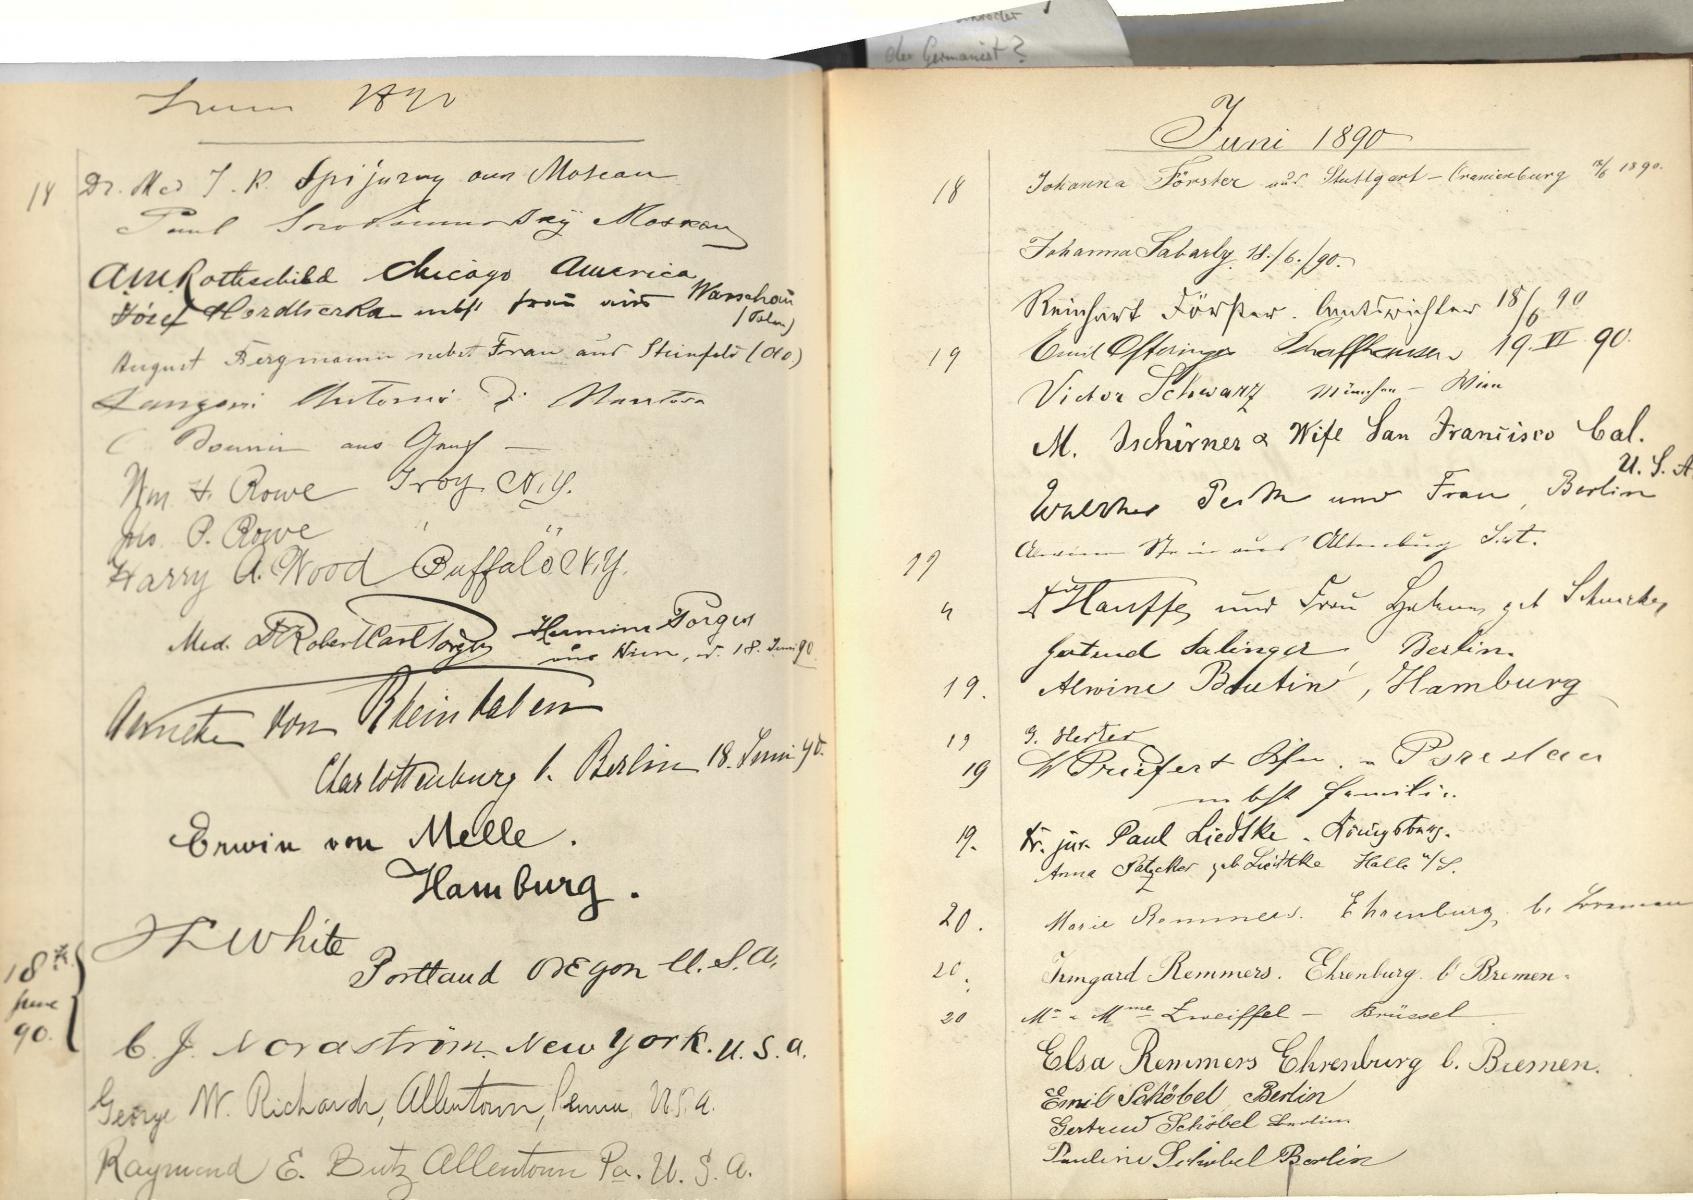 Schröder
der Germanist?
Juni 1890
18 Dr. Med J. K. aus Moscau
Paul Moskau
A.M. Rothschild Chicago America
Józef nebst frau aus Warschau
(Polen)
August Bergmann nebst Frau aus Steinfeld (Old)
Langoni Antonio di Mantova
aus Genf —
Wm H. Rowe Troy, N.Y.
Jas. P. Rowe " "
Harry A. Wood Buffalo N.Y.
Med. Dr Robert Carl Porges Hermine Porges
aus Wien, d. 18. Juni 90
von Rheinbaben
Charlottenburg b. Berlin 18. Juni 90.
Erwin von Melle.
Hamburg.
White
Portland Oregon U.S.A.
18th
June
90.
C. J. Nordström. New York. U.S.A.
George W. Richards, Allentown, Penna, U.S.A.
Raymond E. Butz Allentown Pa. U.S.A.
Juni 1890
18 Johanna Förster aus Stuttgart – Cranienburg 18/6 1890.
Johanna Sabarly. 18./6./90.
Reinhart Förster. Amtsrichter 18/6 90
19 Emil Ofteringer Schaffhausen 19. VI 90.
Victor Schwarz München – Wien
M. Tschirner & Wife San Francisco Cal.
U.S.A
Walther und Frau, Berlin
19 Stein aus Altenburg
" Hauffe, und Frau geb
Gertrud Salinger Berlin.
19. Alwine Boutin, Hamburg
19 G. Herter
19 W Priefert Breslau
nebst familie.
19. Dr. jur. Paul Liedtke. Königsberg.
Anna Patzcker geb Liedtke Halle a/S.
20. Marie Remmers. Ehrenburg b. Bremen
20. Irmgard Remmers. Ehrenburg. b Bremen.
20 Mr & Mme Zweiffel – Brüssel
Elsa Remmers Ehrenburg b. Bremen.
Emil Schöbel Berlin
Gertrud Schöbel Berlin
Pauline Schöbel Berlin